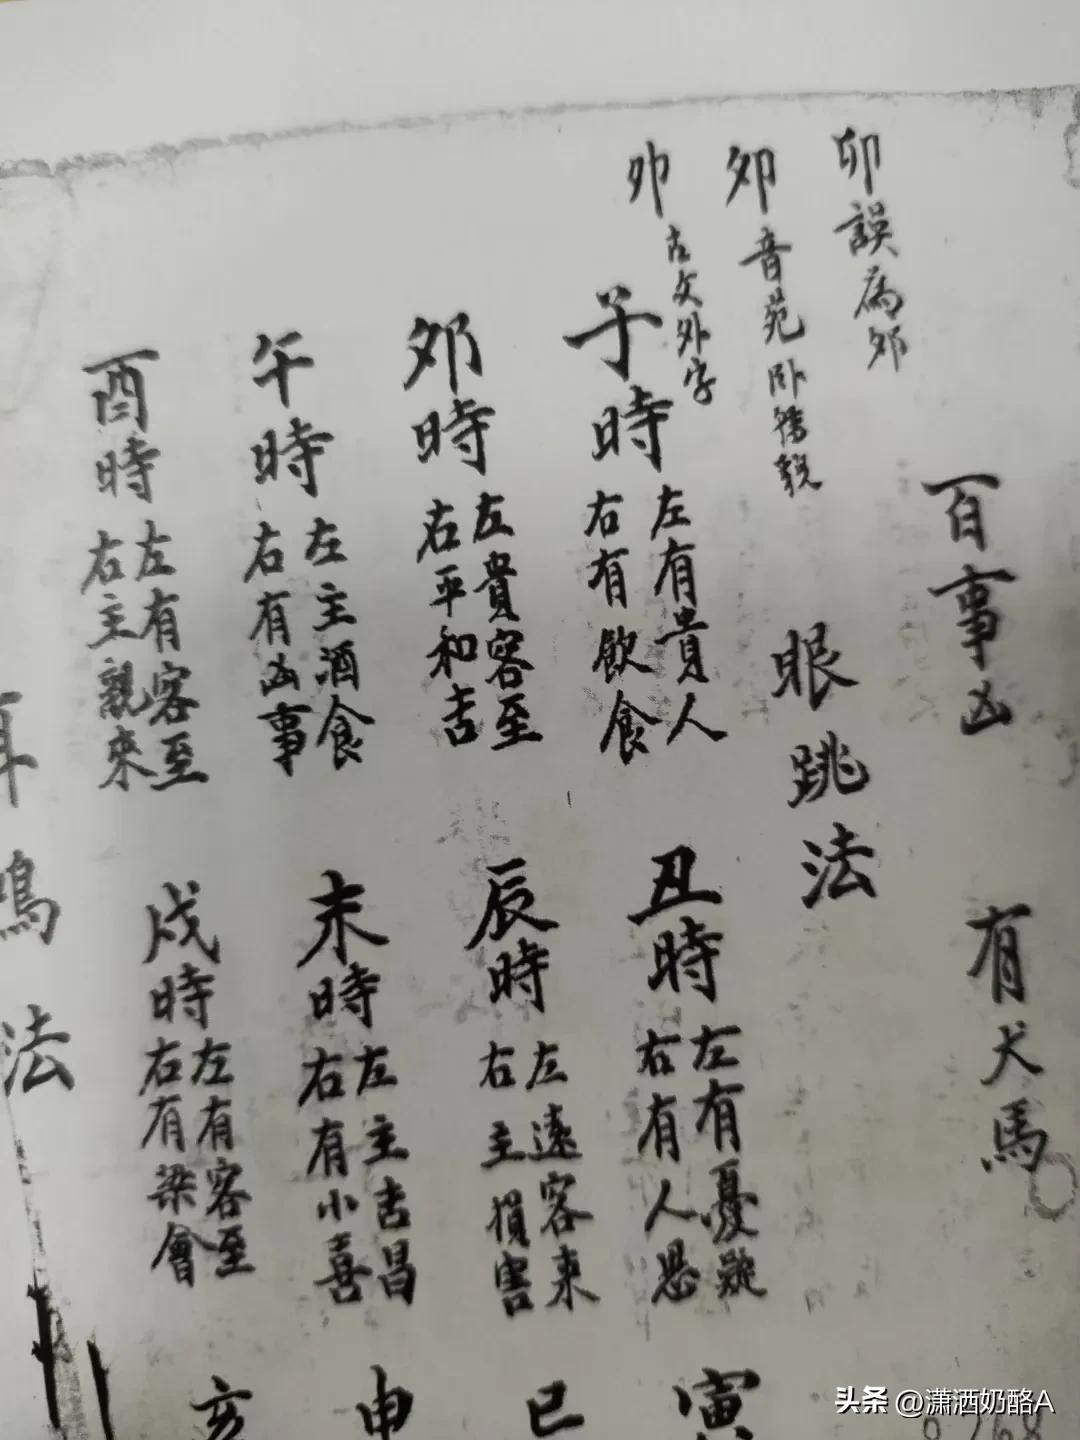 卯誤為夘
夘音苑卧轉貌
夘古文外字
百事凶
有犬馬
眼跳法
子時
左有貴人
右有飲食
丑時
左有憂疑
右有人思
寅
夘時
左貴客至
右平和吉
辰時
左遠客来
右主損害
巳
午時
左主酒食
右有凶事
未時
左主吉昌
右有小喜
申
酉時
左有客至
右主親來
戌時
左有客至
右有梁會
亥
耳鳴法
头条 @潇洒奶酪A